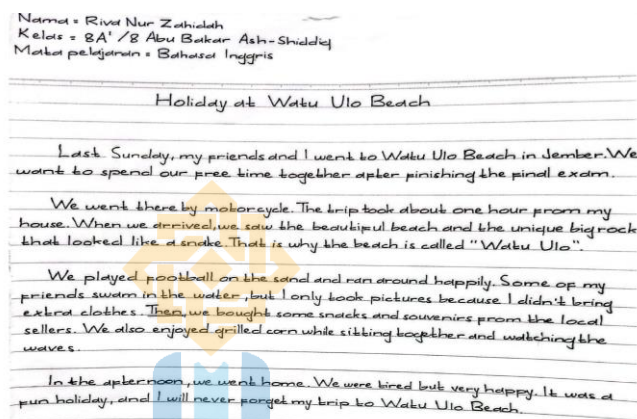 Nama = Riva Nur Zahidah
Kelas = 8A' /8 Abu Bakar Ash-Shiddiq
Mata pelajaran = Bahasa Inggris
Holiday at Watu Ulo Beach
Last Sunday, my friends and I went to Watu Ulo Beach in Jember. We
want to spend our free time together after finishing the final exam.
We went there by motorcycle. The trip took about one hour from my
house. When we arrived, we saw the beautiful beach and the unique big rock
that looked like a snake. That is why the beach is called "Watu Ulo".
We played football on the sand and ran around happily. Some of my
friends swam in the water, but I only took pictures because I didn't bring
extra clothes. Then, we bought some snacks and souvenirs from the local
sellers. We also enjoyed grilled corn while sitting together and watching the
waves.
In the afternoon, we went home. We were tired but very happy. It was a
fun holiday, and I will never forget my trip to Watu Ulo Beach.